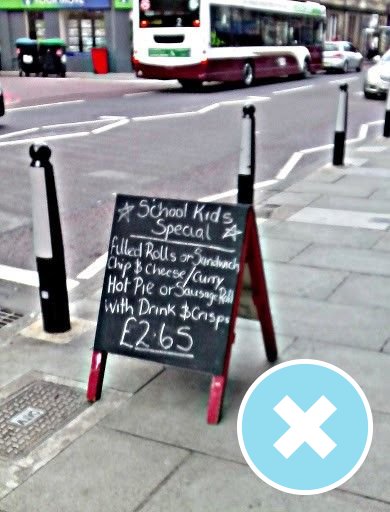 ☆ School Kids ☆
Special
Filled Rolls or Sandwich
Chip $ Cheese/Curry
Hot Pie or Sausage Roll
with Drink $ Crisps
£2.65